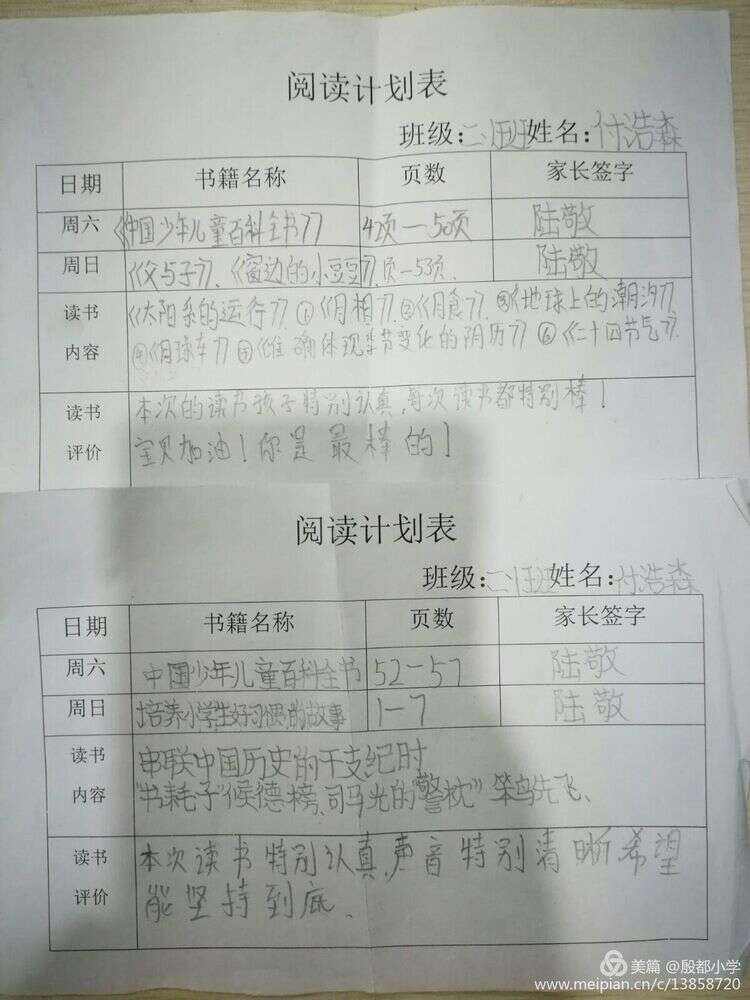 阅读计划表
班级:二(五)班姓名:付浩森
日期 书籍名称 页数 家长签字
周六 《中国少年儿童百科全书》 42页—50页 陆敬
周日 《父与子》、《窗边的小豆豆》 页—53页. 陆敬
读书 《太阳系的运行》①《月相》.②《月食》.③《地球上的潮汐》.
内容 ④《月球车》⑤《准确体现季节变化的阴历》⑥《二十四节气》.
读书 本次的读书孩子特别认真,每次读书都特别棒!
评价 宝贝加油!你是最棒的!
阅读计划表
班级:二(五)班姓名:付浩森
日期 书籍名称 页数 家长签字
周六 中国少年儿童百科全书 52—57 陆敬
周日 培养小学生好习惯的故事 1—7 陆敬
读书 串联中国历史的干支纪时
内容 "书耗子"候德榜、司马光的"警枕"笨鸟先飞、
读书 本次读书特别认真,声音特别清晰希望
评价 能坚持到底.
美篇 @殷都小学
www.meipian.cn/c/13858720